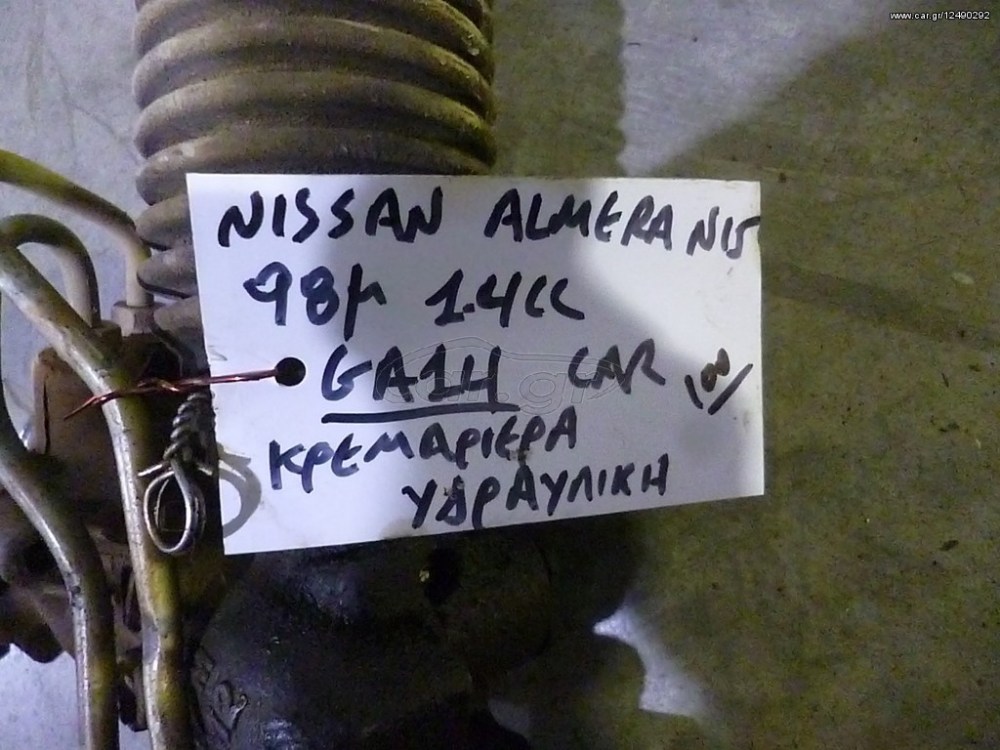 www.car.gr/12490292
NISSAN ALMERA N15
98μ 1.4cc
GA14 CAR 100/
ΚΡΕΜΑΡΙΕΡΑ
ΥΔΡΑΥΛΙΚΗ
car.gr